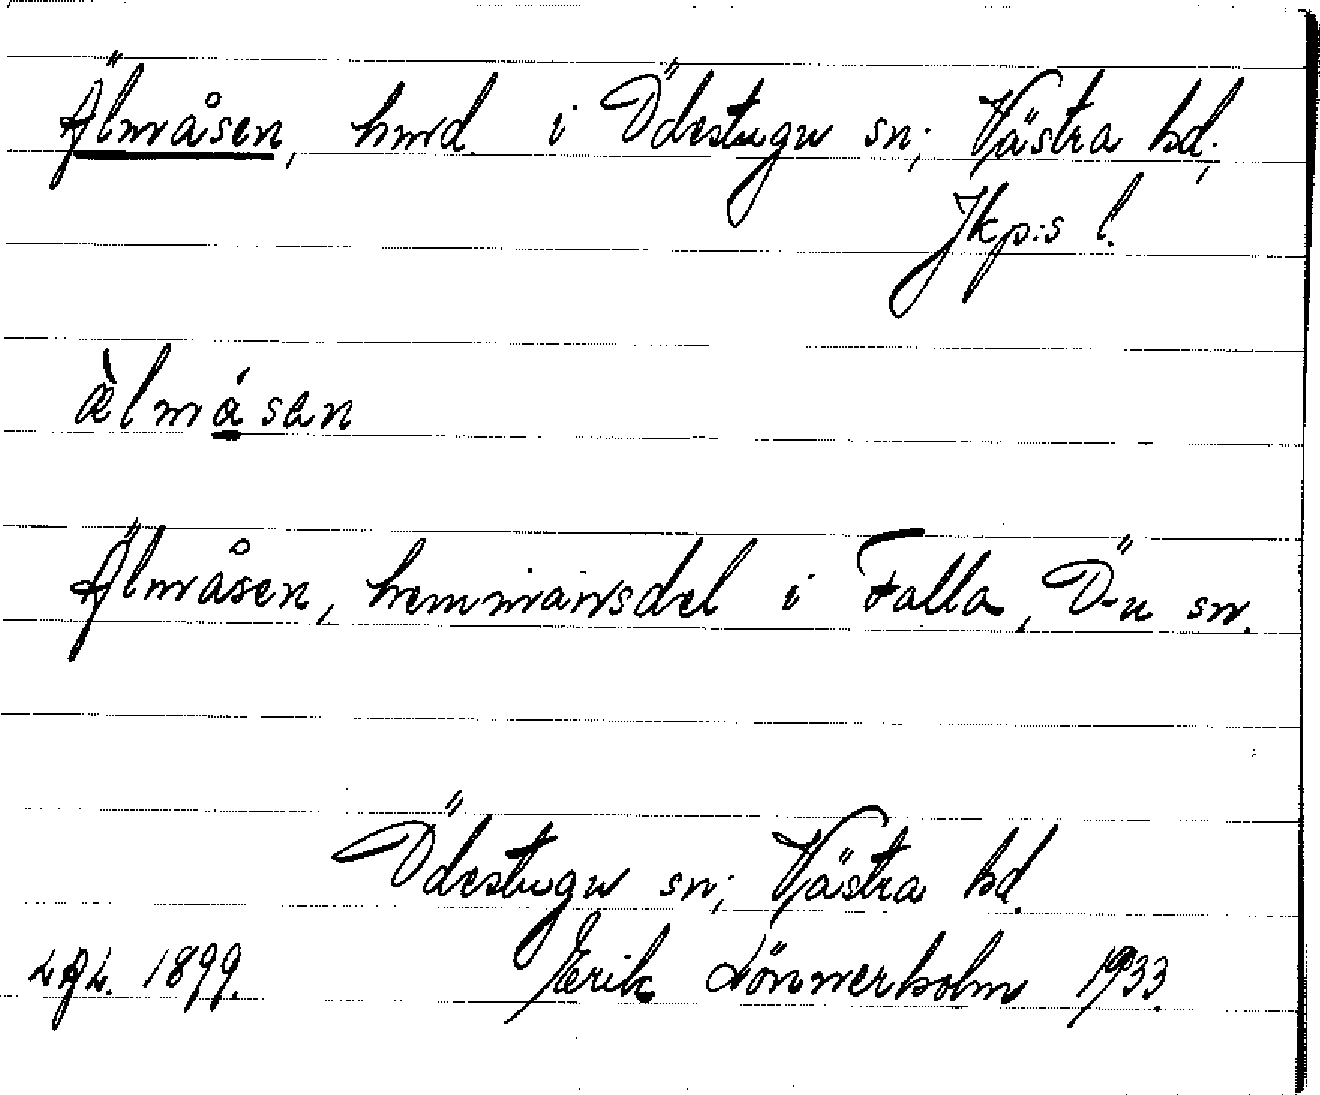 Älmåsen, hmd i Ödestugu sn; Västra hd;
Jkp:s l.
æ̀lmåsan
Älmåsen, hemmansdel i Falla, Ö-u sn.
Ödestugu sn; Västra hd.
1899. Erik Lönnerholm 1933.